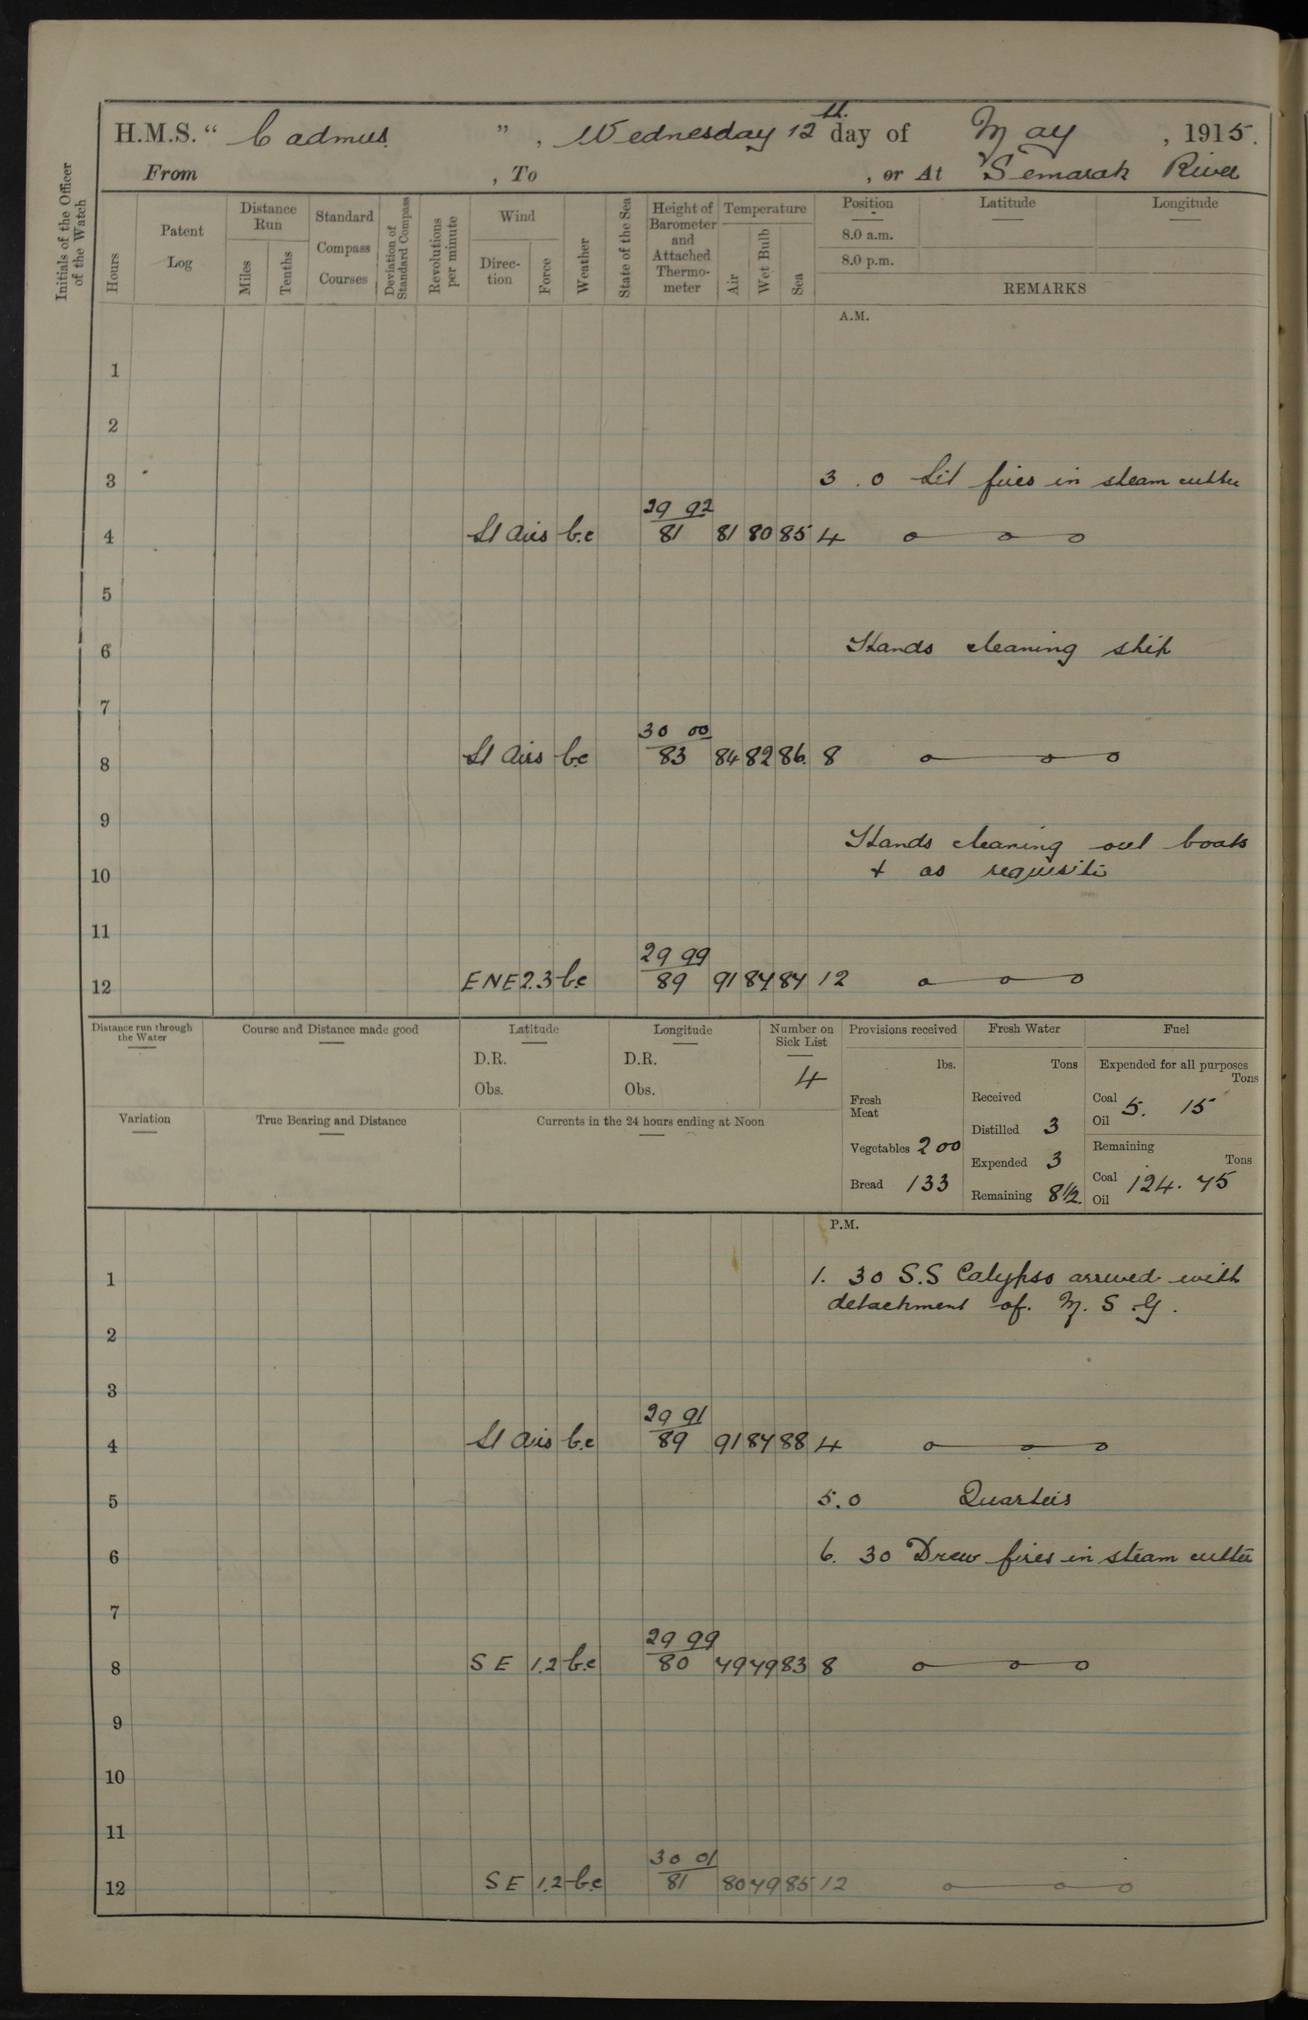 H.M.S. “ Cadmus ”, Wednesday 12th day of May, 1915.
From , To , or At Semarak River
Initials of the Officer of the Watch
Hours
Patent Log
Distance Run
Miles
Tenths
Standard Compass Courses
Deviation of Standard Compass
Revolutions per minute
Wind
Direction
Force
Weather
State of the Sea
Height of Barometer and Attached Thermometer
Temperature
Air
Wet Bulb
Sea
Position
8.0 a.m.
8.0 p.m.
Latitude
Longitude
REMARKS
A.M.
1
2
3 3.0 Lit fires in steam cutter
29 92
4 Lt Airs b.c 81 81 80 85 4
5
6 Hands cleaning ship
7
30 00
8 Lt Airs b.c 83 84 82 86. 8
9 Hands cleaning out boats
10 + as requisite
11
29 99
12 ENE 2.3 b.c 89 91 84 84 12
Distance run through the Water
Course and Distance made good
Latitude
D.R.
Obs.
Longitude
D.R.
Obs.
Number on Sick List
4
Variation
True Bearing and Distance
Currents in the 24 hours ending at Noon
Provisions received
lbs.
Fresh Meat
Vegetables 200
Bread 133
Fresh Water
Tons
Received
Distilled 3
Expended 3
Remaining 8 1/2
Fuel
Expended for all purposes
Tons
Coal 5. 15
Oil
Remaining
Tons
Coal 124. 75
Oil
P.M.
1 1. 30 S.S Calypso arrived with
detachment of M. S. G.
2
3
29 91
4 Lt Airs b.c 89 91 84 88 4
5 5.0 Quarters
6 6. 30 Drew fires in steam cutter
7
29 99
8 SE 1.2 b.c 80 79 79 83 8
9
10
11
30 01
12 SE 1.2 b.c 81 80 79 85 12